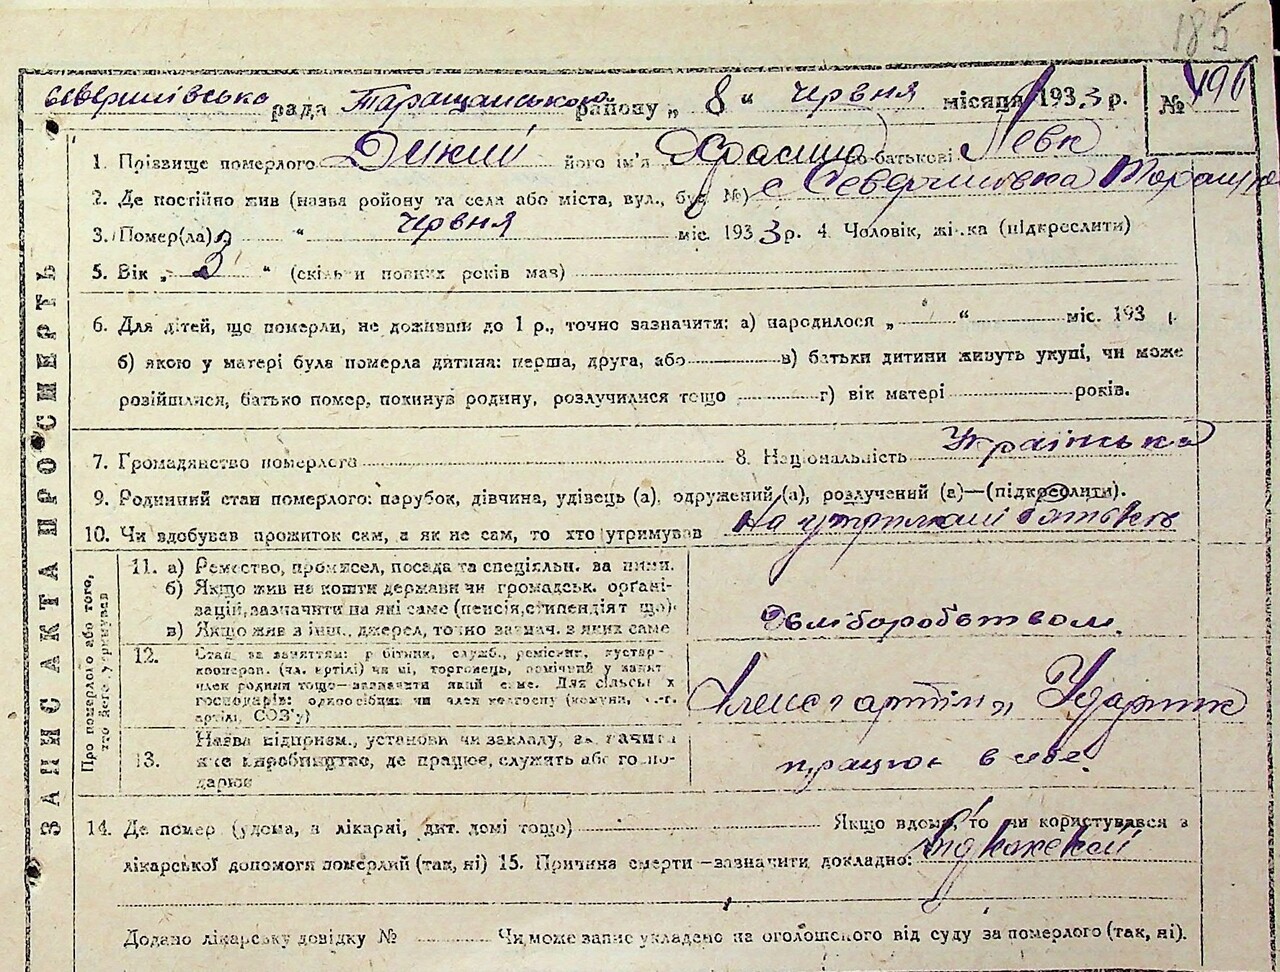 185
Северинівська рада Таращанського району „ 8 “ червня місяця 1933 р. № 196
1. Прізвище померлого Дикий його ім'я по-батькові Левк
2. Де постійно жив (назва ройону та села або міста, вул., буд. №) с Северинівка Таращ
3. Помер(ла) „ “ червня міс. 1933 р. 4. Чоловік, жінка (підкреслити)
5. Вік „ 3 “ (скільки повних років мав)
6. Для дітей, що померли, не доживши до 1 р., точно зазначити: а) народилося „ “ міс. 193 р.
б) якою у матері була померла дитина: перша, друга, або в) батьки дитини живуть укупі, чи може
розійшлися, батько помер, покинув родину, розлучилися тощо г) вік матері років.
7. Громадянство померлого 8. Національність Українська
9. Родинний стан померлого: парубок, дівчина, удівець (а), одружений (а), розлучений (а)—(підкреслити).
10. Чи здобував прожиток сам, а як не сам, то хто утримував На утриманні батьків
ЗАПИС АКТА ПРО СМЕРТЬ
Про померлого або того, хто його утримував
11. а) Ремество, промисел, посада та спеціяльн. за ними.
б) Якщо жив на кошти держави чи громадськ. органі-
зацій, зазначити на які саме (пенсія, стипендіят що)
в) Якщо жив з інш. джерел, точно зазнач. з яких саме
хліборобством
12. Стан за заняттям: робітник, служб., ремісник, кустар-
кооперов. (чл. артілі) чи ні, торговець, помічний у занят
член родини тощо—зазначити який саме. Для сільськ х
господарів: одноосібник чи член колгоспу (комуни, с.-г.
артілі, СОЗ'у)
Член с артіли „Ударник
13. Назва підприєм., установи чи закладу, зазначити
яке виробництво, де працює, служить або госпо-
дарює
працює в себе
14. Де помер (удома, в лікарні, дит. домі тощо) Якщо вдома, то чи користувався з
лікарської допомоги померлий (так, ні) 15. Причина смерти—зазначити докладно:
Додано лікарську довідку № Чи може запис укладено на оголошеного від суду за померлого (так, ні).